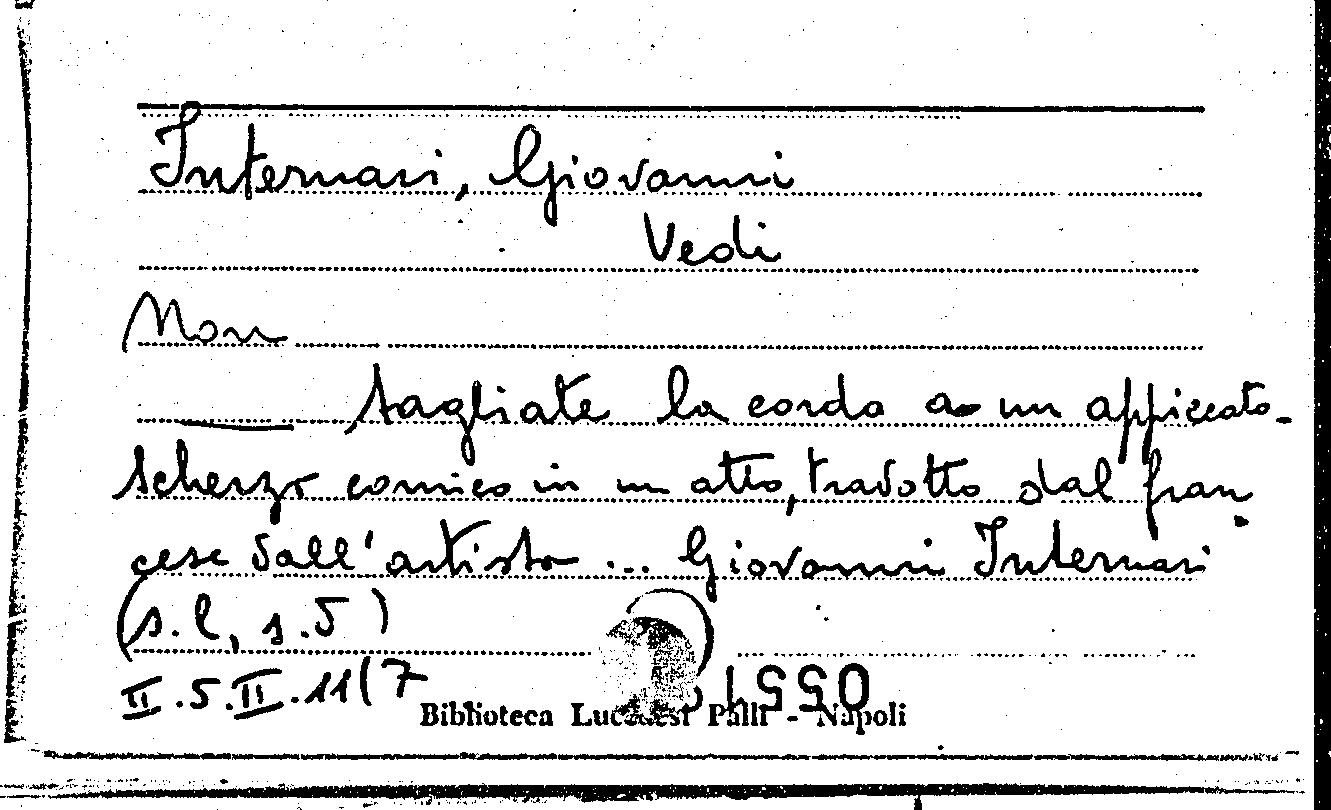 Internari, Giovanni
Vedi
Non
tagliate la corda a un appiccato -
scherzo comico in un atto, tradotto dal fran
cese dall'artista ... Giovanni Internari
(s.l, s.d)
II.5.II.11(7
Biblioteca Lucchesi Palli - Napoli